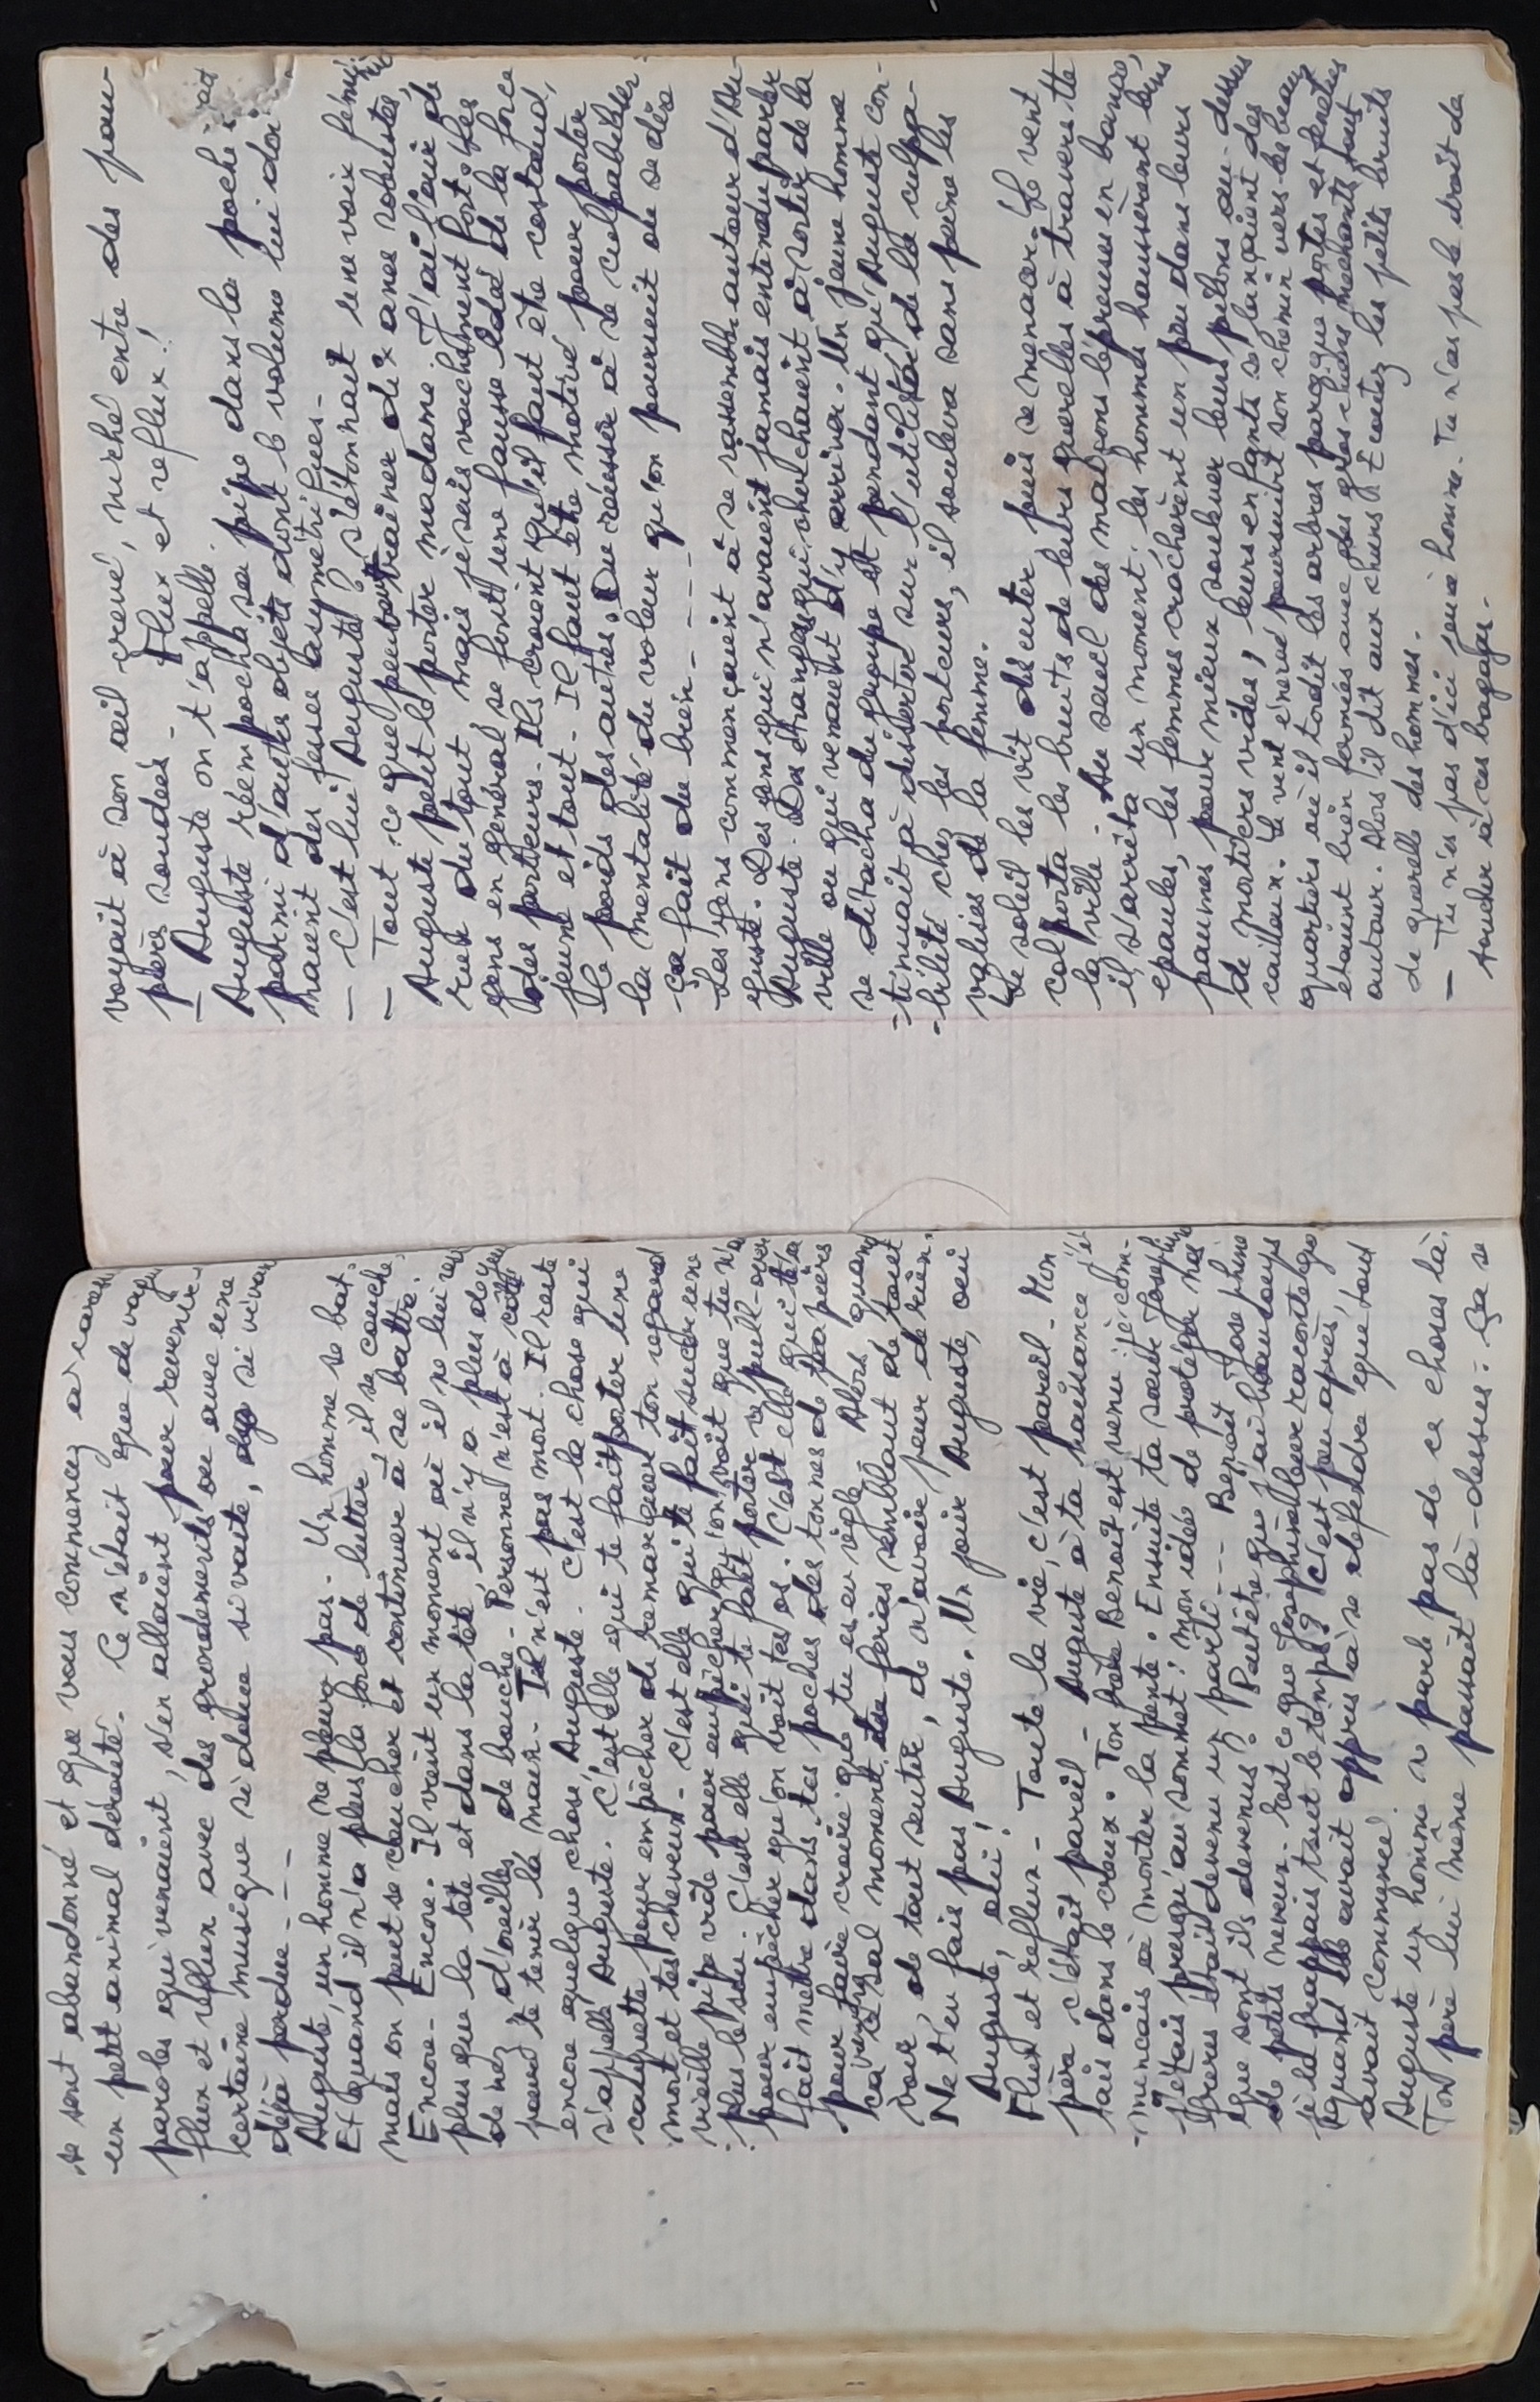 se sont abandonné et que vous commencez à
un petit animal dérouté. Ce n'était que de
paroles qui venaient, s'en allaient pour revenir.
flux et reflux avec des grondements ou avec une
certaine musique si douce si vaste, si
déjà perdue ---
Auguste, un homme ne pleure pas. Un homme se bat.
Et quand il n'a plus la force de lutter, il se couche,
mais on peut se coucher et continuer à se battre.
Encore. Encore. Il vient un moment où il ne lui
plus que la tête et dans la tête, il n'y a plus
de nez, d'oreilles, de bouche. Personne n'est à côté
pour te tenir la main. Il n'est pas mort. Il reste
encore quelque chose, Auguste. C'est la chose qui
s'appelle Auguste. C'est elle qui te fait porter une
casquette pour empêcher de remarquer ton regard
mort et tes cheveux. C'est elle qui te fait sucer une
vieille pipe vide pour empêcher qu'on voit que tu n'a
plus le sou. C'est elle qui te fait porter ce pull-over
pour empêcher qu'on voit tes os. C'est elle qui t'a
fait mettre dans tes poches des tonnes de
pour faire croire que tu es en vie. Alors quand
ça vente sal moment tu ferias semblant de tout
voir, de tout sentir, de n'avoir peur de rien.
Ne t'en fais pas Auguste. Un jour Auguste, oui
Auguste, oui!
Flux et reflux. Toute la vie, c'est pareil. Mon
père c'était pareil. Auguste à ta naissance j'é-
tais dans le creux. Ton frère Benoit est venu je com-
-mencais à monter la pente. Ensuite ta soeur Josephine
j'étais presqu'au sommet: mon idée de protéger
frères était devenu un parti --- Benoit Josephine
que sont ils devenus? Peut être que j'ai beaucoups
de petits neveux. Tout ce que Josephine leur raconte
je la frappais tout le temps? C'est peu après,
quand elle avait appris à se défendre que tout
avait commencé!
Auguste un homme ne parle pas de ces choses là.
Ton père lui même passait là-dessus: ça se
voyait à son œil creux, niché entre des pau-
pières soudés. Flux et reflux!
— Auguste on t'appelle.
Auguste réempocha sa pipe dans la poche
parmi d'autres objets dont le volume lui don-
naient des fesses asymétriques.
— C'est lui Auguste? s'étonnait une voix
— Tout ce que peuvent traîner dix ânes robustes,
Auguste peut le porter madame. J'ai l'air de
rien du tout mais je suis vachement fort. Les
gens en général se font une fausse idée de la force
des porteurs. Ils croient qu'il faut être costaud,
jeune et tout. Il faut être motivé pour porter
le poids des autres. Ou réussir à se culpabiliser
la mentalité du voleur qu'on pourrait ou se dire
ça fait du bien ----
Les gens commençaient à se rassembler autour d'Au-
guste. Des gens qui n'avaient jamais entendu parler
Auguste. Des étrangers qui cherchaient à sortir de la
ville ou qui venaient d'y arriver. Un jeune homme
se détacha du groupe et pendant qu'Auguste con-
-tinuait à disserter sur l'utilité de la culpa-
-bilité chez les porteurs, il souleva sans peine les
valises de la femme.
Le soleil les vit discuter puis se menacer. Le vent
colporta les bruits de leurs querelles à travers tte
la ville. Au seuil des maisons lépreuses en banco,
il s'arrêta un moment: les hommes haussèrent leurs
épaules, les femmes crachèrent un peu dans leurs
paumes pour mieux soulever leurs pilons au-dessus
de mortiers vides, leurs enfants se lançaient des
cailloux. Le vent énervé poursuivit son chemin vers les beaux
quartiers où il tordit les arbres parceque portes et fenêtres
étaient bien fermées avec des gros chiens méchants tout
autour. Alors il dit aux chiens: Écoutez les petits bruits
de querelle des hommes.
— Tu n'es pas d'ici jeune homme. Tu n'as pas le droit de
toucher à ces bagages.